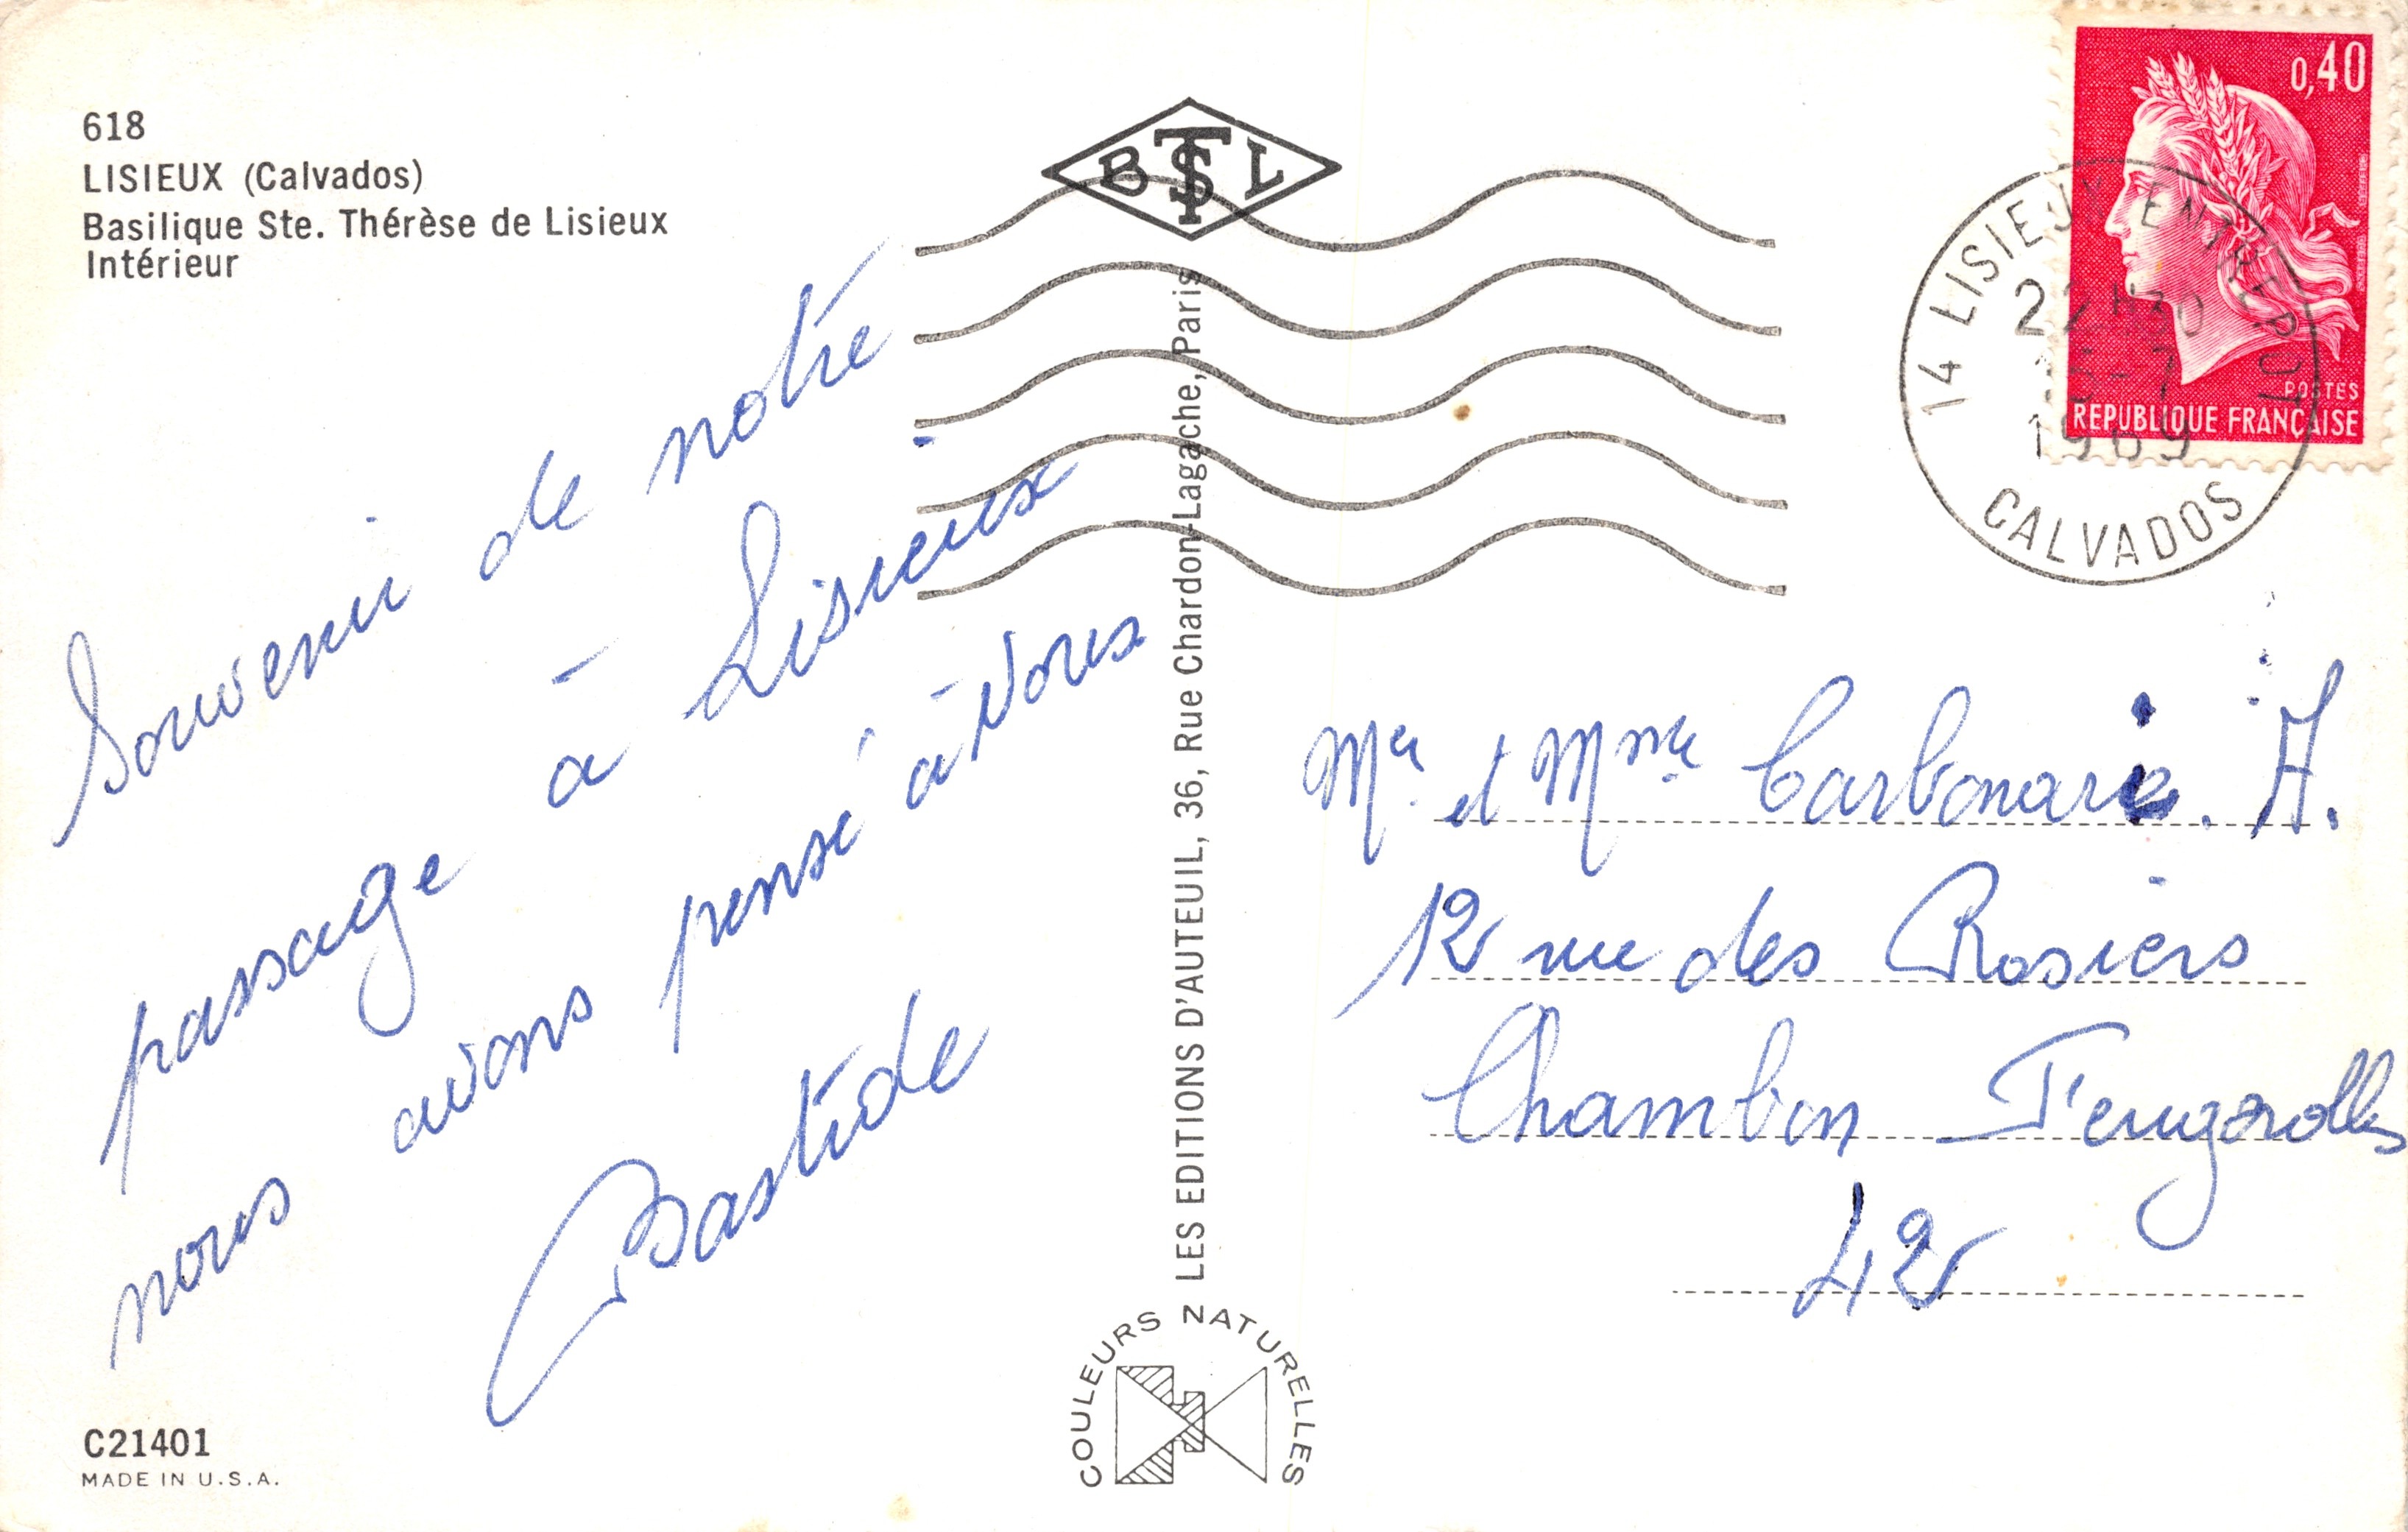 618
LISIEUX (Calvados)
Basilique Ste. Thérèse de Lisieux
Intérieur
Souvenir de notre
passage à Lisieux
nous avons pensé à Vous
Bastide
C21401
MADE IN U.S.A.
BTSL
LES EDITIONS D'AUTEUIL, 36, Rue Chardon-Lagache, Paris
COULEURS NATURELLES
0,40
POSTES
REPUBLIQUE FRANÇAISE
14 LISIEUX ENTREPOT
22H30
-7
1969
CALVADOS
Mr et Mme Carbonari. A.
12 rue des Rosiers
Chambon Feugerolles
42